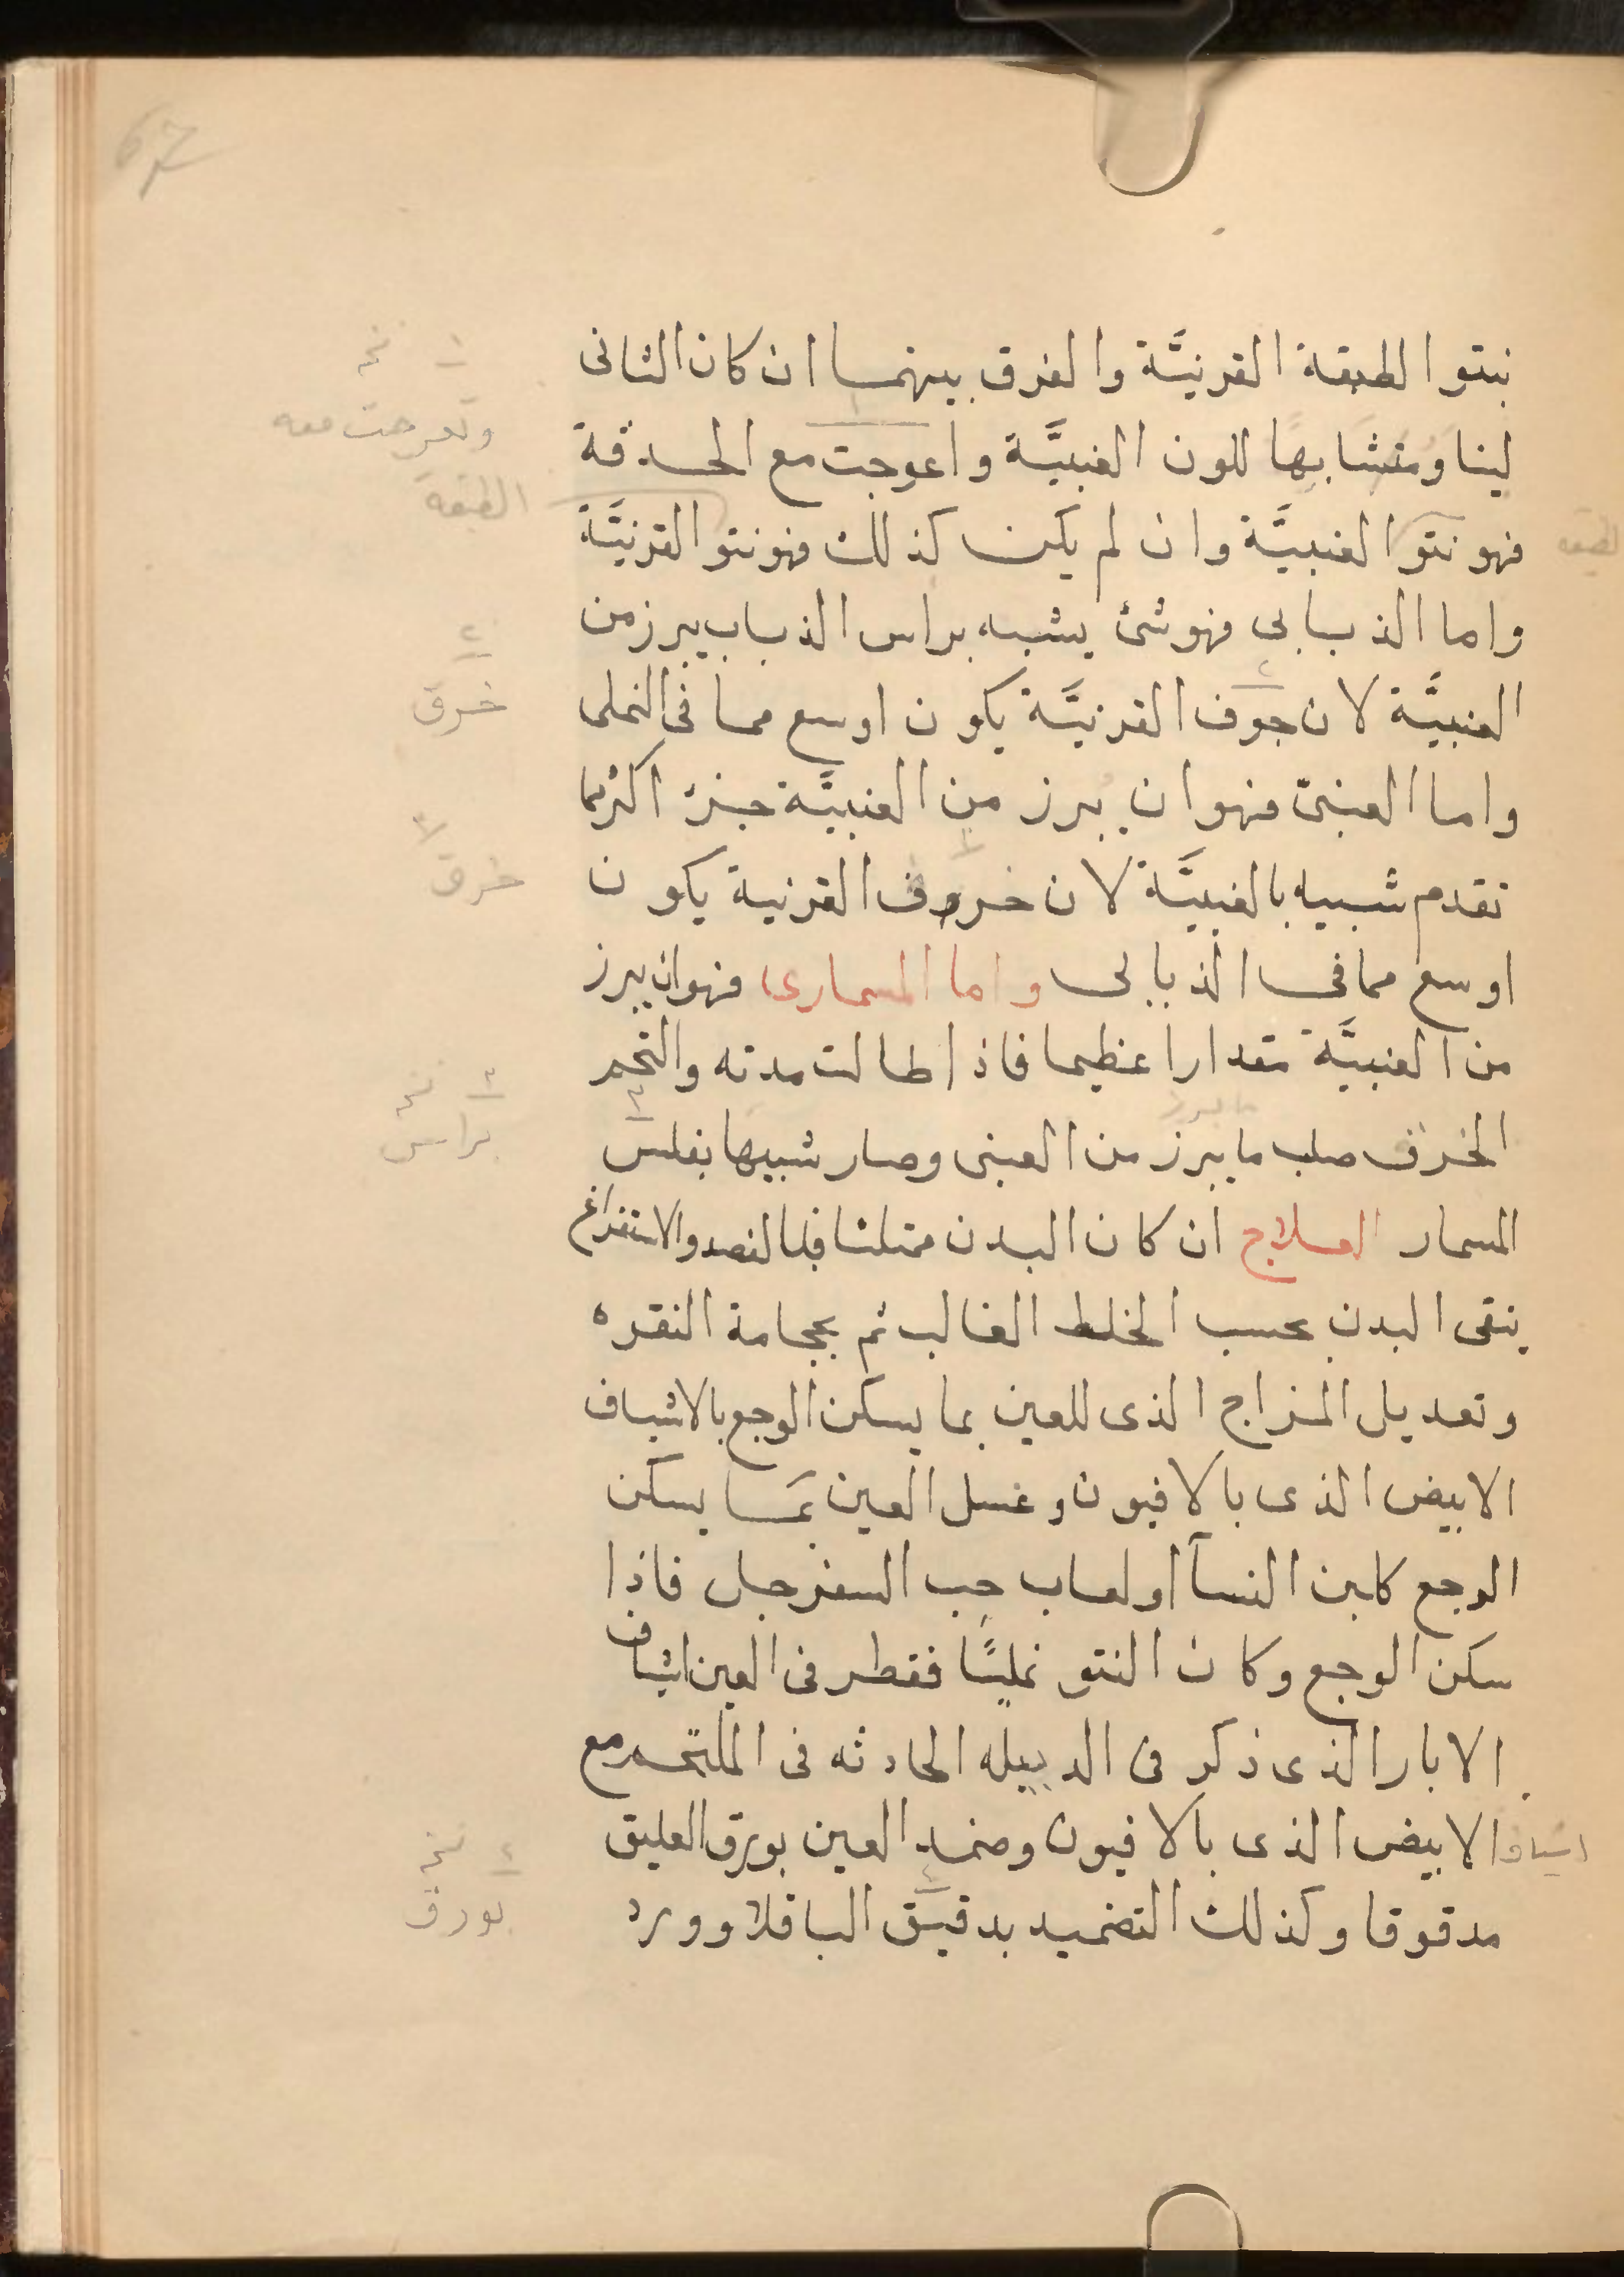 67
بنتوا لطبقة القرنيَّة والفرق بينهما ان كان الثانى
لينا ومتشابها للون العنبيَّة واعوجت مع الحدقة
فهو نتوا العنبيَّة وان لم يكن كذلك فهو نتو القرنيَّة
واما الذبابى فهو شئ يشبه براس الذباب يبرز من
العنبيَّة لان جوف القرنيَّة يكون اوسع مما فى النملى
واما العنبىّ فهو ان يبرز من العنبيَّة جزء اكثر مما
تقدم شبيه بالعنبيَّة لان خروف القرنية يكون
اوسع مما فى الذبابى واما المسمارى فهو ان يبرز
من العنبيَّة مقدارا عظيما فاذا طالت مدته والتحم
الخرف صلب ما يبرز من العنبى وصار شبيها بفلس
المسمار العلاج ان كان البدن ممتلئا فبالفصد والاستفراغ
ينقى البدن بحسب الخلط الغالب ثم بحجامة النقره
وتعديل المزاج الذى للعين بما يسكن الوجع بالاشياف
الابيض الذى بالافيون وغسل العين بما يسكن
الوجع كلبن النسآ او لعاب حب السفرجل فاذا
سكن الوجع وكان النتو نمليًّا فقطر فى العين اشياف
الابار الذى ذكر فى الدبيله الحادثه فى الملتحم مع
الابيض الذى بالافيون وضمد العين بورق العليق
مدقوقا وكذلك التضميد بدقيق الباقلا وورد
١ نخ
وتعرجت معه
الطبقة
٢
خرق
٣
خرق
٣ نخ
براس
٤ نخ
بورق
لطبقه
ما يبرز
اشياف